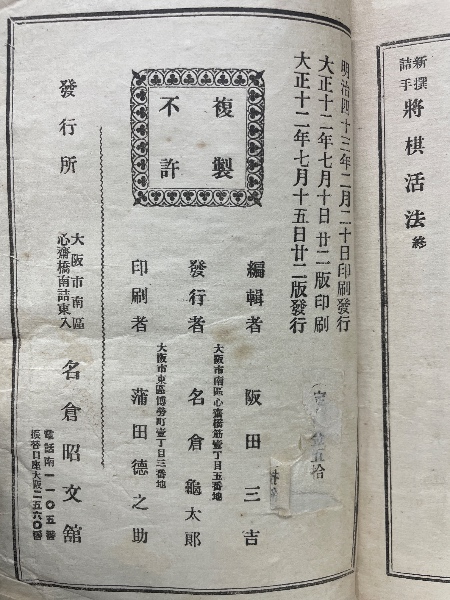 新撰
詰手
將棋活法 終
明治四十三年二月二十日印刷發行
大正十二年七月十日廿二版印刷
大正十二年七月十五日廿二版發行
五拾
複製
不許
編輯者 阪田三吉
大阪市南區心齋橋筋壹丁目五番地
發行者 名倉龜太郎
大阪市東區博勞町壹丁目三番地
印刷者 蒲田德之助
發行所
大阪市南區
心齋橋南詰東入
名倉昭文舘
電話南一一〇五番
振替口座大阪二五六〇番